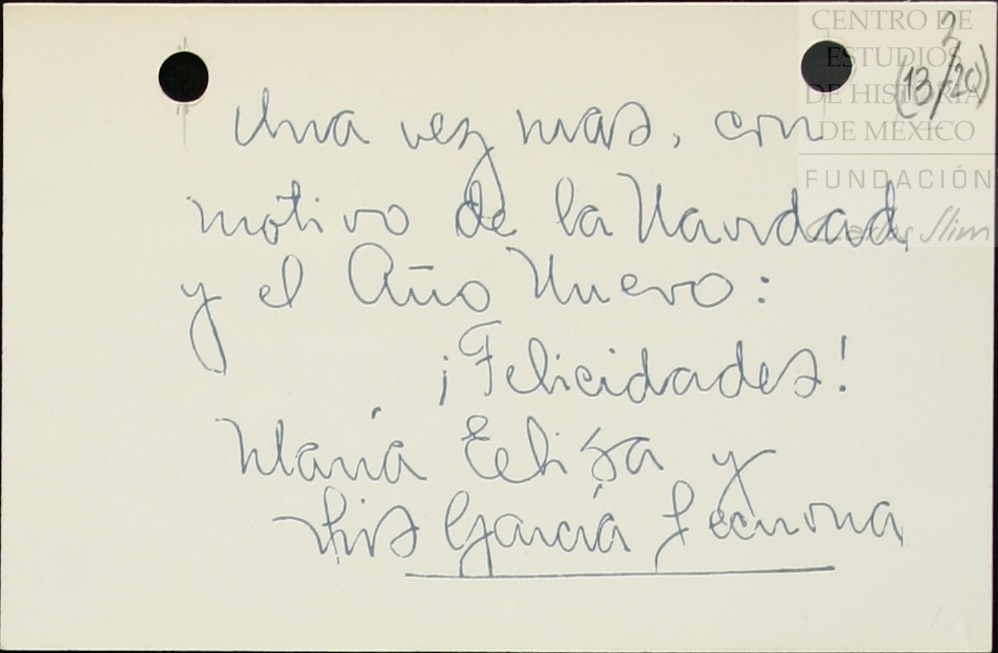 CENTRO DE
ESTUDIOS
DE HISTORIA
DE MÉXICO
FUNDACIÓN
Carlos Slim
2
(13/20)
Una vez mas, con
motivo de la Navidad,
y el Año Nuevo:
¡Felicidades!
María Elisa y
Luis García Lecuona